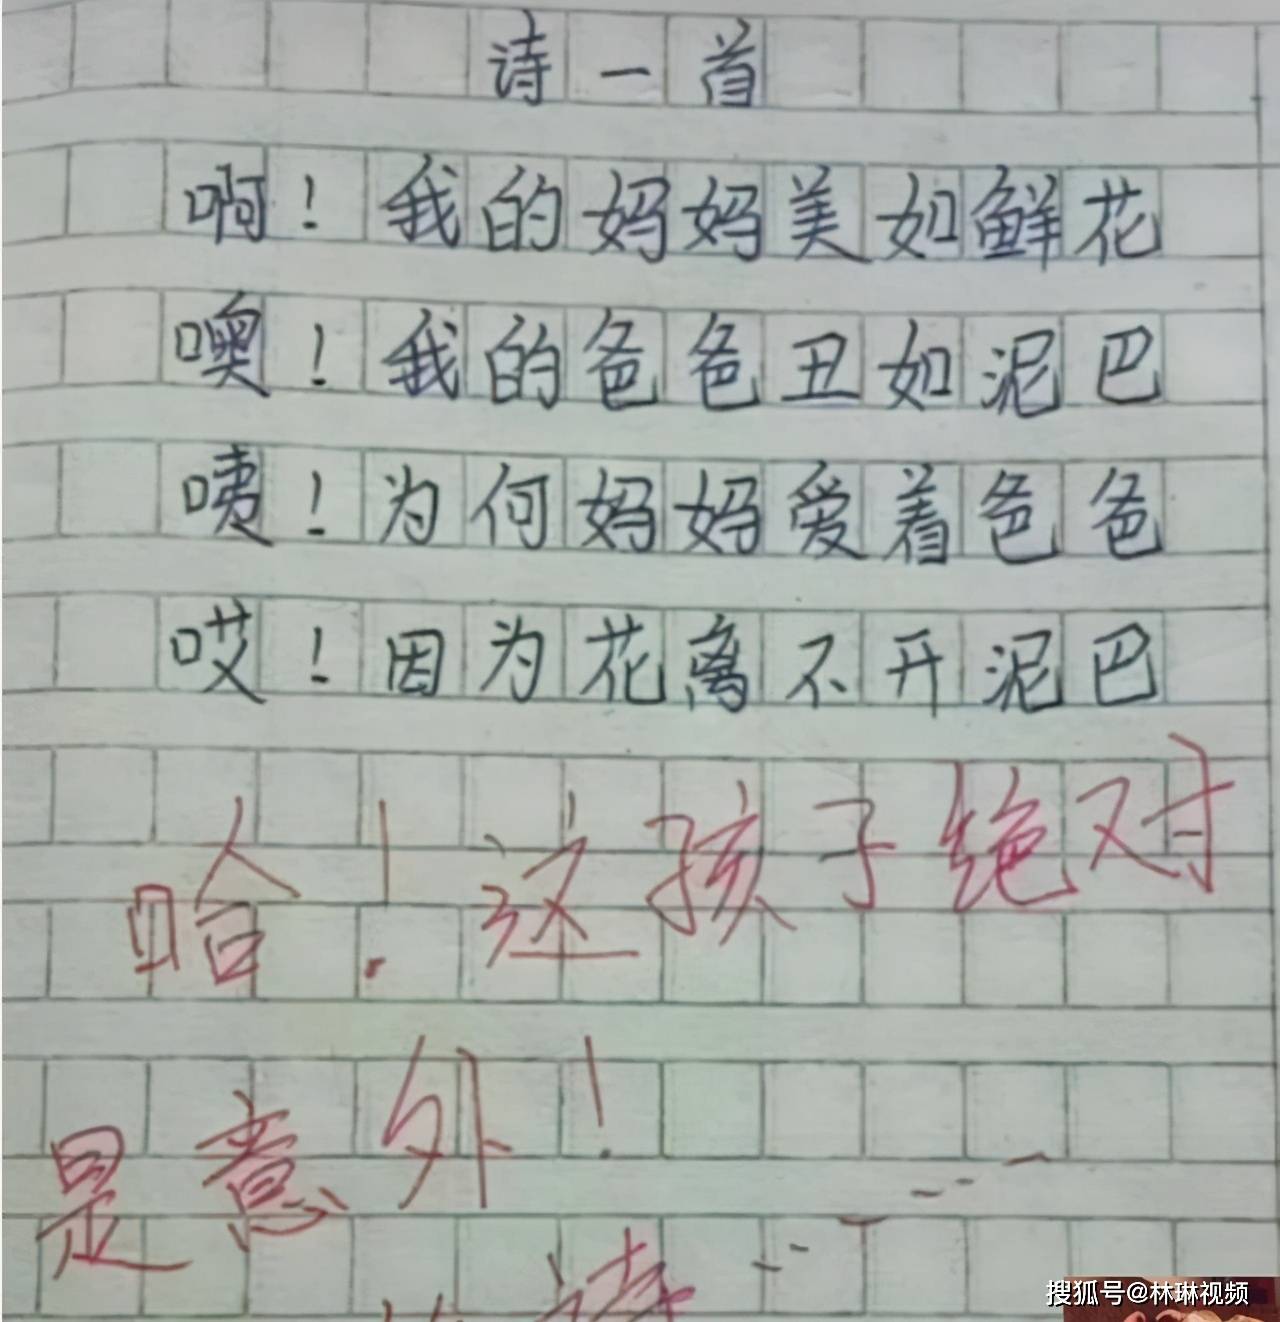 诗一首
啊！我的妈妈美如鲜花
噢！我的爸爸丑如泥巴
咦！为何妈妈爱着爸爸
哎！因为花离不开泥巴
哈！这孩子绝对
是意外！
搜狐号@林琳视频